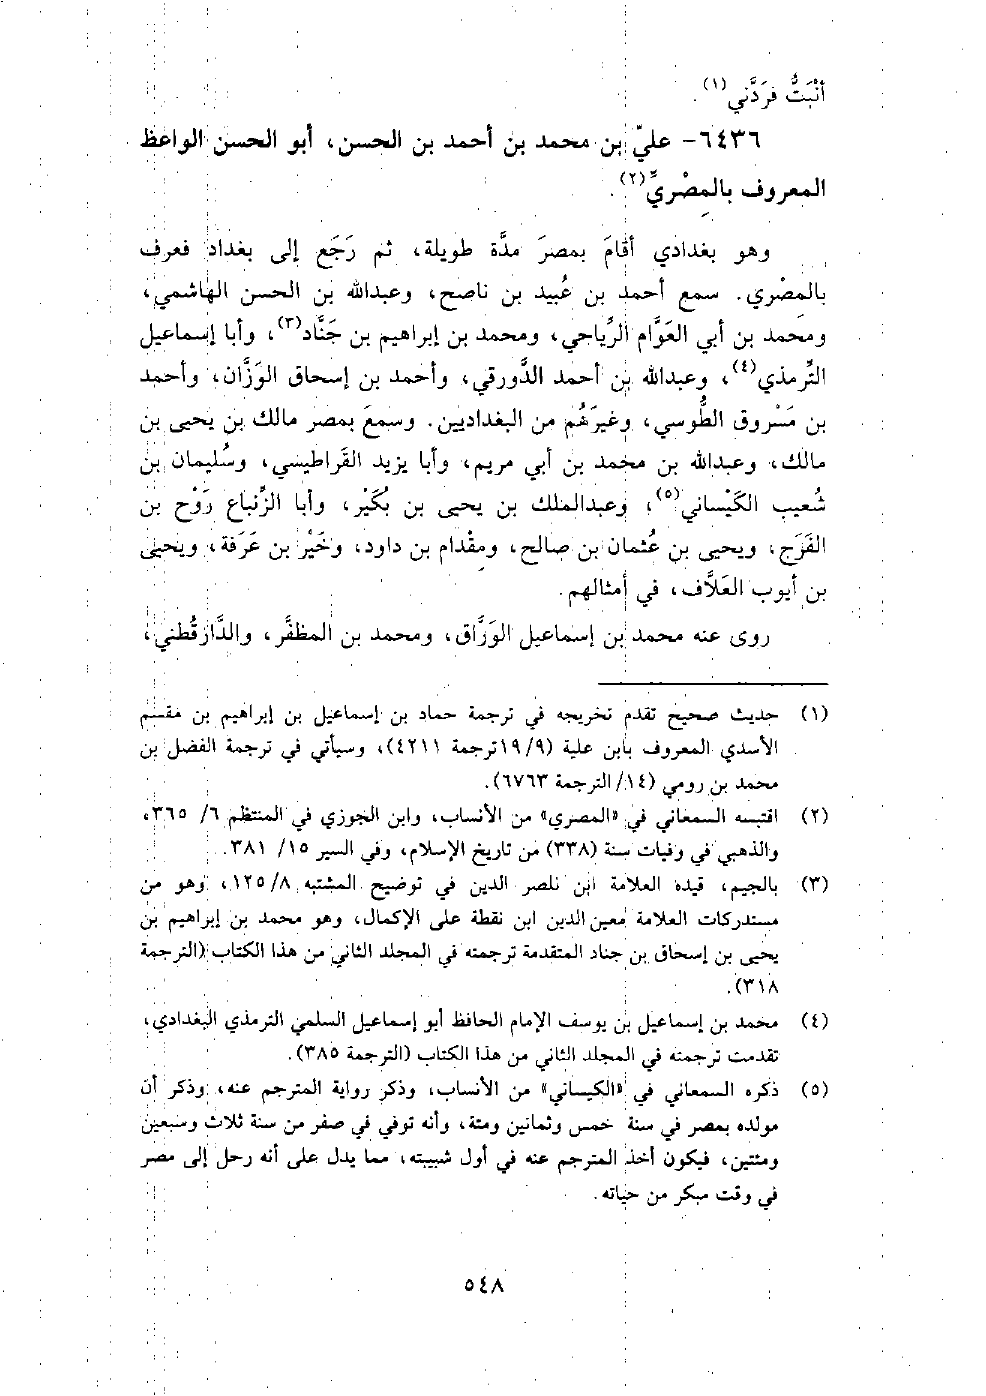 أنْبَتُّ فرَدَّني(١).
٦٤٣٦- عليّ بن محمد بن أحمد بن الحسن، أبو الحسن الواعظ
المعروف بالمِصْريِّ(٢).
وهو بغدادي أقامَ بمصرَ مدَّة طويلة، ثم رَجَع إلى بغداد فعرف
بالمِصْري. سمع أحمد بن عُبيد بن ناصح، وعبدالله بن الحسن الهاشمي،
ومحمد بن أبي العَوَّام الرِّياحي، ومحمد بن إبراهيم بن جَنَّاد(٣)، وأبا إسماعيل
التِّرمذي(٤)، وعبدالله بن أحمد الدَّورقي، وأحمد بن إسحاق الوَزَّان، وأحمد
بن مَسْروق الطُّوسي، وغيرَهُم من البغداديين. وسمعَ بمصر مالك بن يحيى بن
مالك، وعبدالله بن محمد بن أبي مريم، وأبا يزيد القَراطيسي، وسُليمان بن
شُعيب الكَيْساني(٥)، وعبدالملك بن يحيى بن بُكَيْر، وأبا الزِّنباع رَوْح بن
الفَرَج، ويحيى بن عُثمان بن صالح، ومِقْدام بن داود، وخَيْر بن عَرَفة، ويحيى
بن أيوب العَلَّاف، في أمثالهم.
روى عنه محمد بن إسماعيل الوَرَّاق، ومحمد بن المظفَّر، والدَّارقُطني،
(١) حديث صحيح تقدم تخريجه في ترجمة حماد بن إسماعيل بن إبراهيم بن مقسم
الأسدي المعروف بابن علية (٩/ ١٩ترجمة ٤٢١١)، وسيأتي في ترجمة الفضل بن
محمد بن رومي (١٤/ الترجمة ٦٧٦٣).
(٢) اقتبسه السمعاني في «المصري» من الأنساب، وابن الجوزي في المنتظم ٦/ ٣٦٥،
والذهبي في وفيات سنة (٣٣٨) من تاريخ الإسلام، وفي السير ١٥/ ٣٨١.
(٣) بالجيم، قيده العلامة ابن ناصر الدين في توضيح المشتبه ٨/ ١٢٥، وهو من
مستدركات العلامة معين الدين ابن نقطة على الإكمال، وهو محمد بن إبراهيم بن
يحيى بن إسحاق بن جناد المتقدمة ترجمته في المجلد الثاني من هذا الكتاب (الترجمة
٣١٨).
(٤) محمد بن إسماعيل بن يوسف الإمام الحافظ أبو إسماعيل السلمي الترمذي البغدادي،
تقدمت ترجمته في المجلد الثاني من هذا الكتاب (الترجمة ٣٨٥).
(٥) ذكره السمعاني في «الكيساني» من الأنساب، وذكر رواية المترجم عنه، وذكر أن
مولده بمصر في سنة خمس وثمانين ومئة، وأنه توفي في صفر من سنة ثلاث وسبعين
ومئتين، فيكون أخذ المترجم عنه في أول شبيبته، مما يدل على أنه رحل إلى مصر
في وقت مبكر من حياته.
٥٤٨